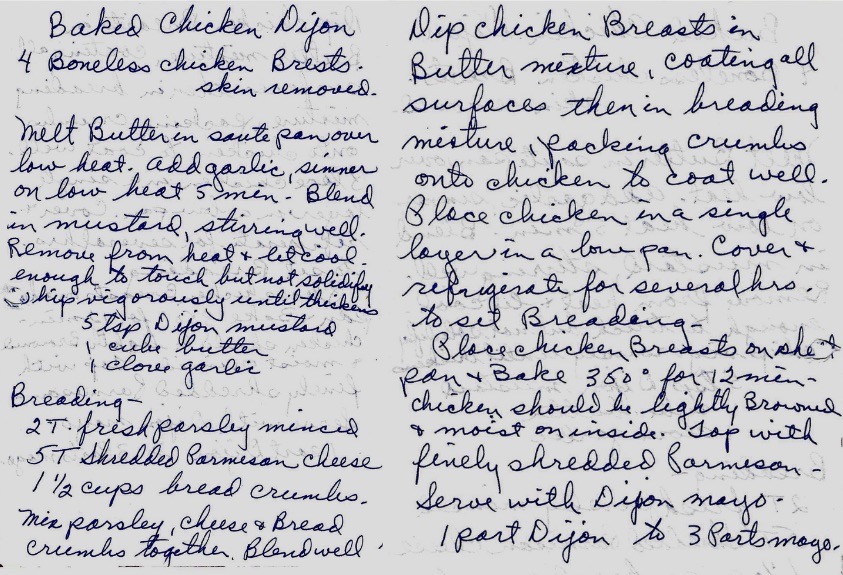 Baked Chicken Dijon
4 Boneless chicken Brests.
skin removed.
Melt Butter in saute pan over
low heat. add garlic, simmer
on low heat 5 min. Blend
in mustard, stirring well.
Remove from heat & let cool
enough to touch but not solidify
whip vigorously until thickens
5 tsp Dijon mustard
1 cube butter
1 clove garlic
Breading-
2T fresh parsley minced
5T Shredded Parmesan cheese
1 1/2 cups bread crumbs.
Mix parsley, cheese & Bread
crumbs together. Blend well
Dip chicken Breasts in
Butter mixture, coating all
surfaces then in breading
mixture, packing crumbs
onto chicken to coat well.
Place chicken in a single
layer in a low pan. Cover &
refrigerate for several hrs.
to set Breading-
Place chicken Breasts on sheet
pan & Bake 350° for 12 min-
chicken should be lightly Browned
& moist on inside. Top with
finely shredded Parmeson-
Serve with Dijon mayo.
1 part Dijon to 3 Parts mayo.